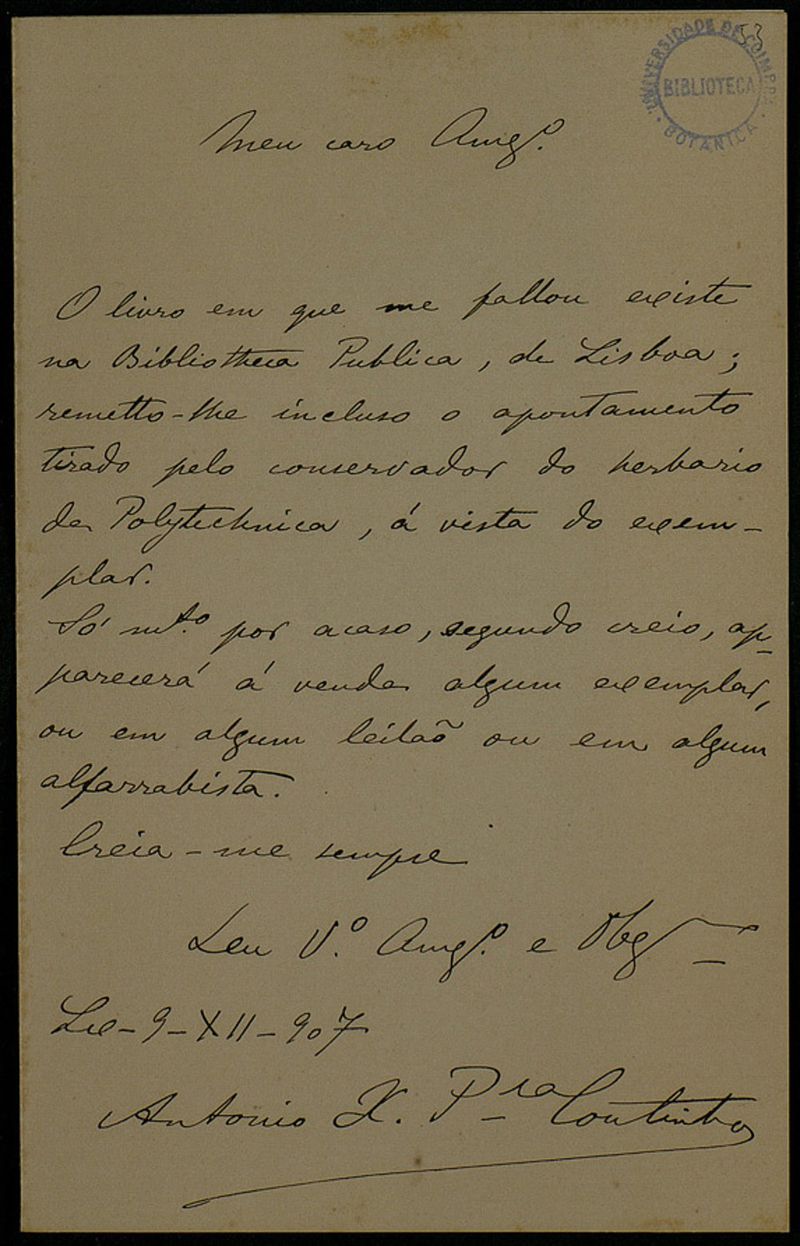 53
UNIVERSIDADE DE COIMBRA
BIBLIOTECA
BOTANICA
Meu caro Amgº.
O livro em que me fallou existe
na Bibliotheca Publica, de Lisboa;
remetto-lhe incluso o apontamento
tirado pelo conservador do herbario
da Polytechnica, á vista do exem-
plar.
Só mtº. por acaso, segundo creio, ap-
parecerá á venda algum exemplar,
ou em algum leilaõ ou em algum
alfarrabista.
Creia-me sempre
Seu Vº. Amgº. e Obg
Lx-9-XII-907
Antonio X. Pra Coutinho